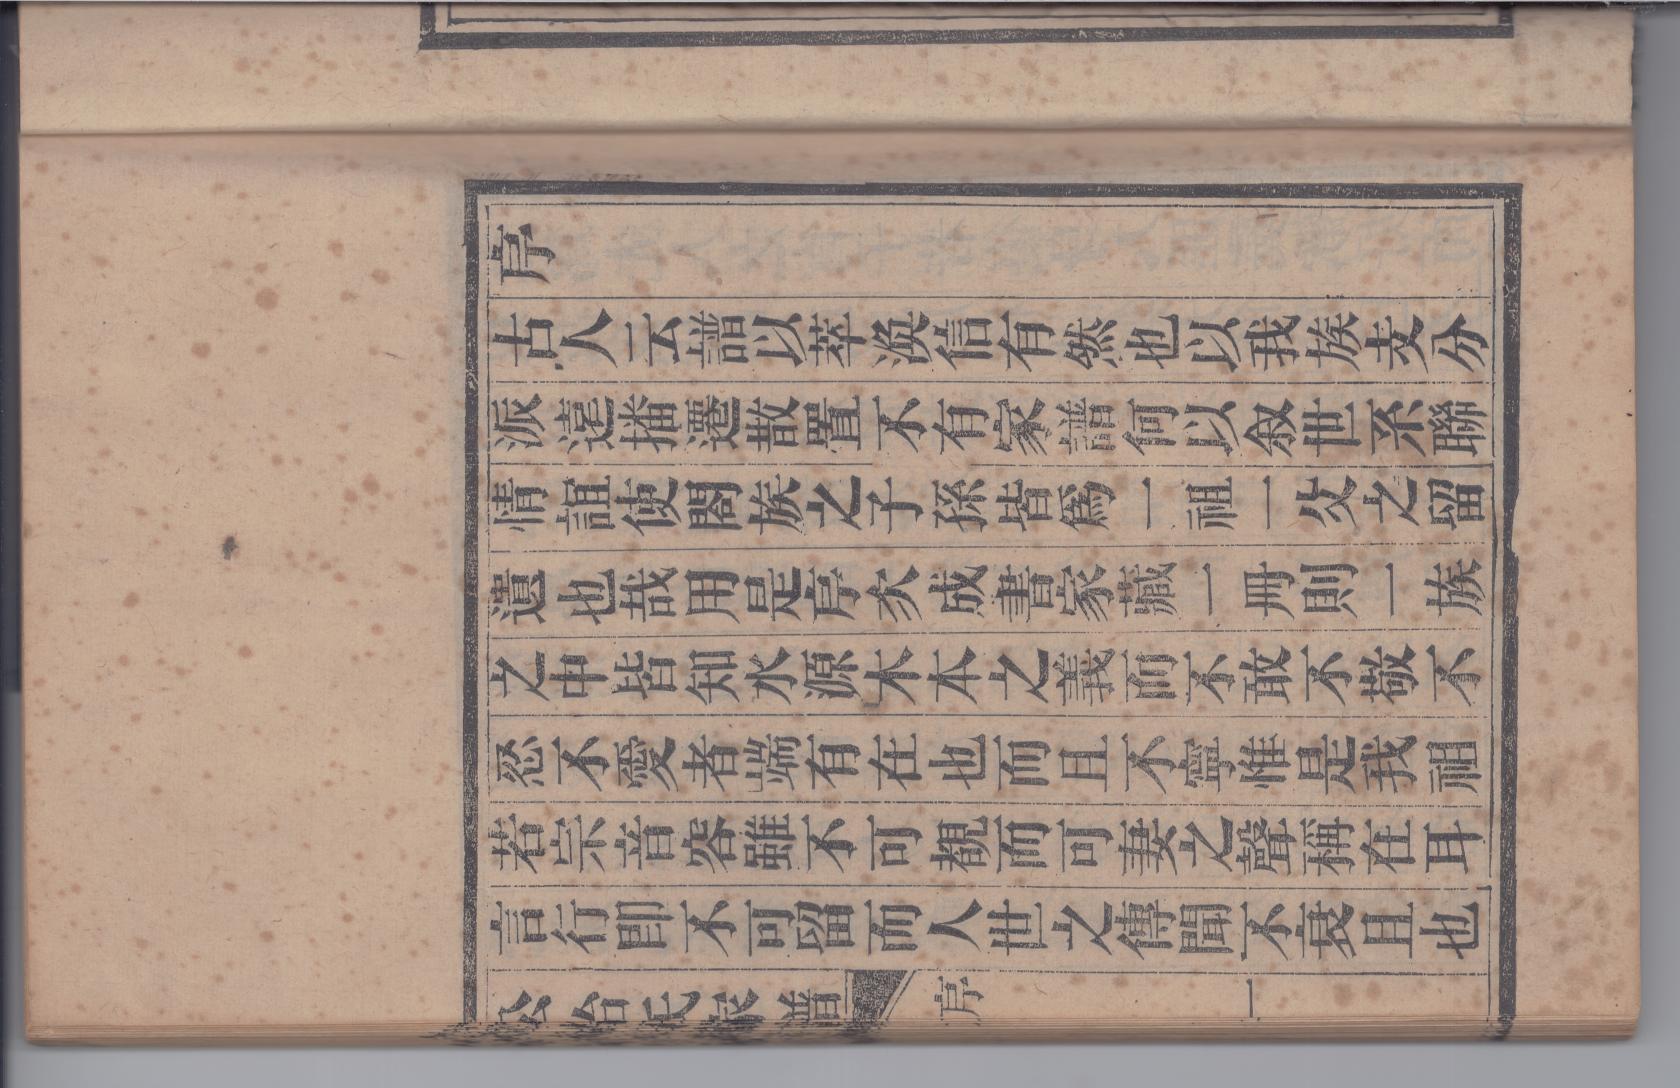 序
古人云譜以萃渙信有然也以我族支分
派遠播遷散置不有家譜何以敘世系聯
情誼使閤族之子孫皆爲一祖一父之留
遺也哉用是序次成書家藏一冊則一族
之中皆知水源木本之義而不敢不敬不
忍不愛者端有在也而且不寧惟是我祖
若宗音容雖不可覩而可妻之聲稱在耳
言行卽不可留而人世之傳聞不衰且也
台氏家譜 序 一